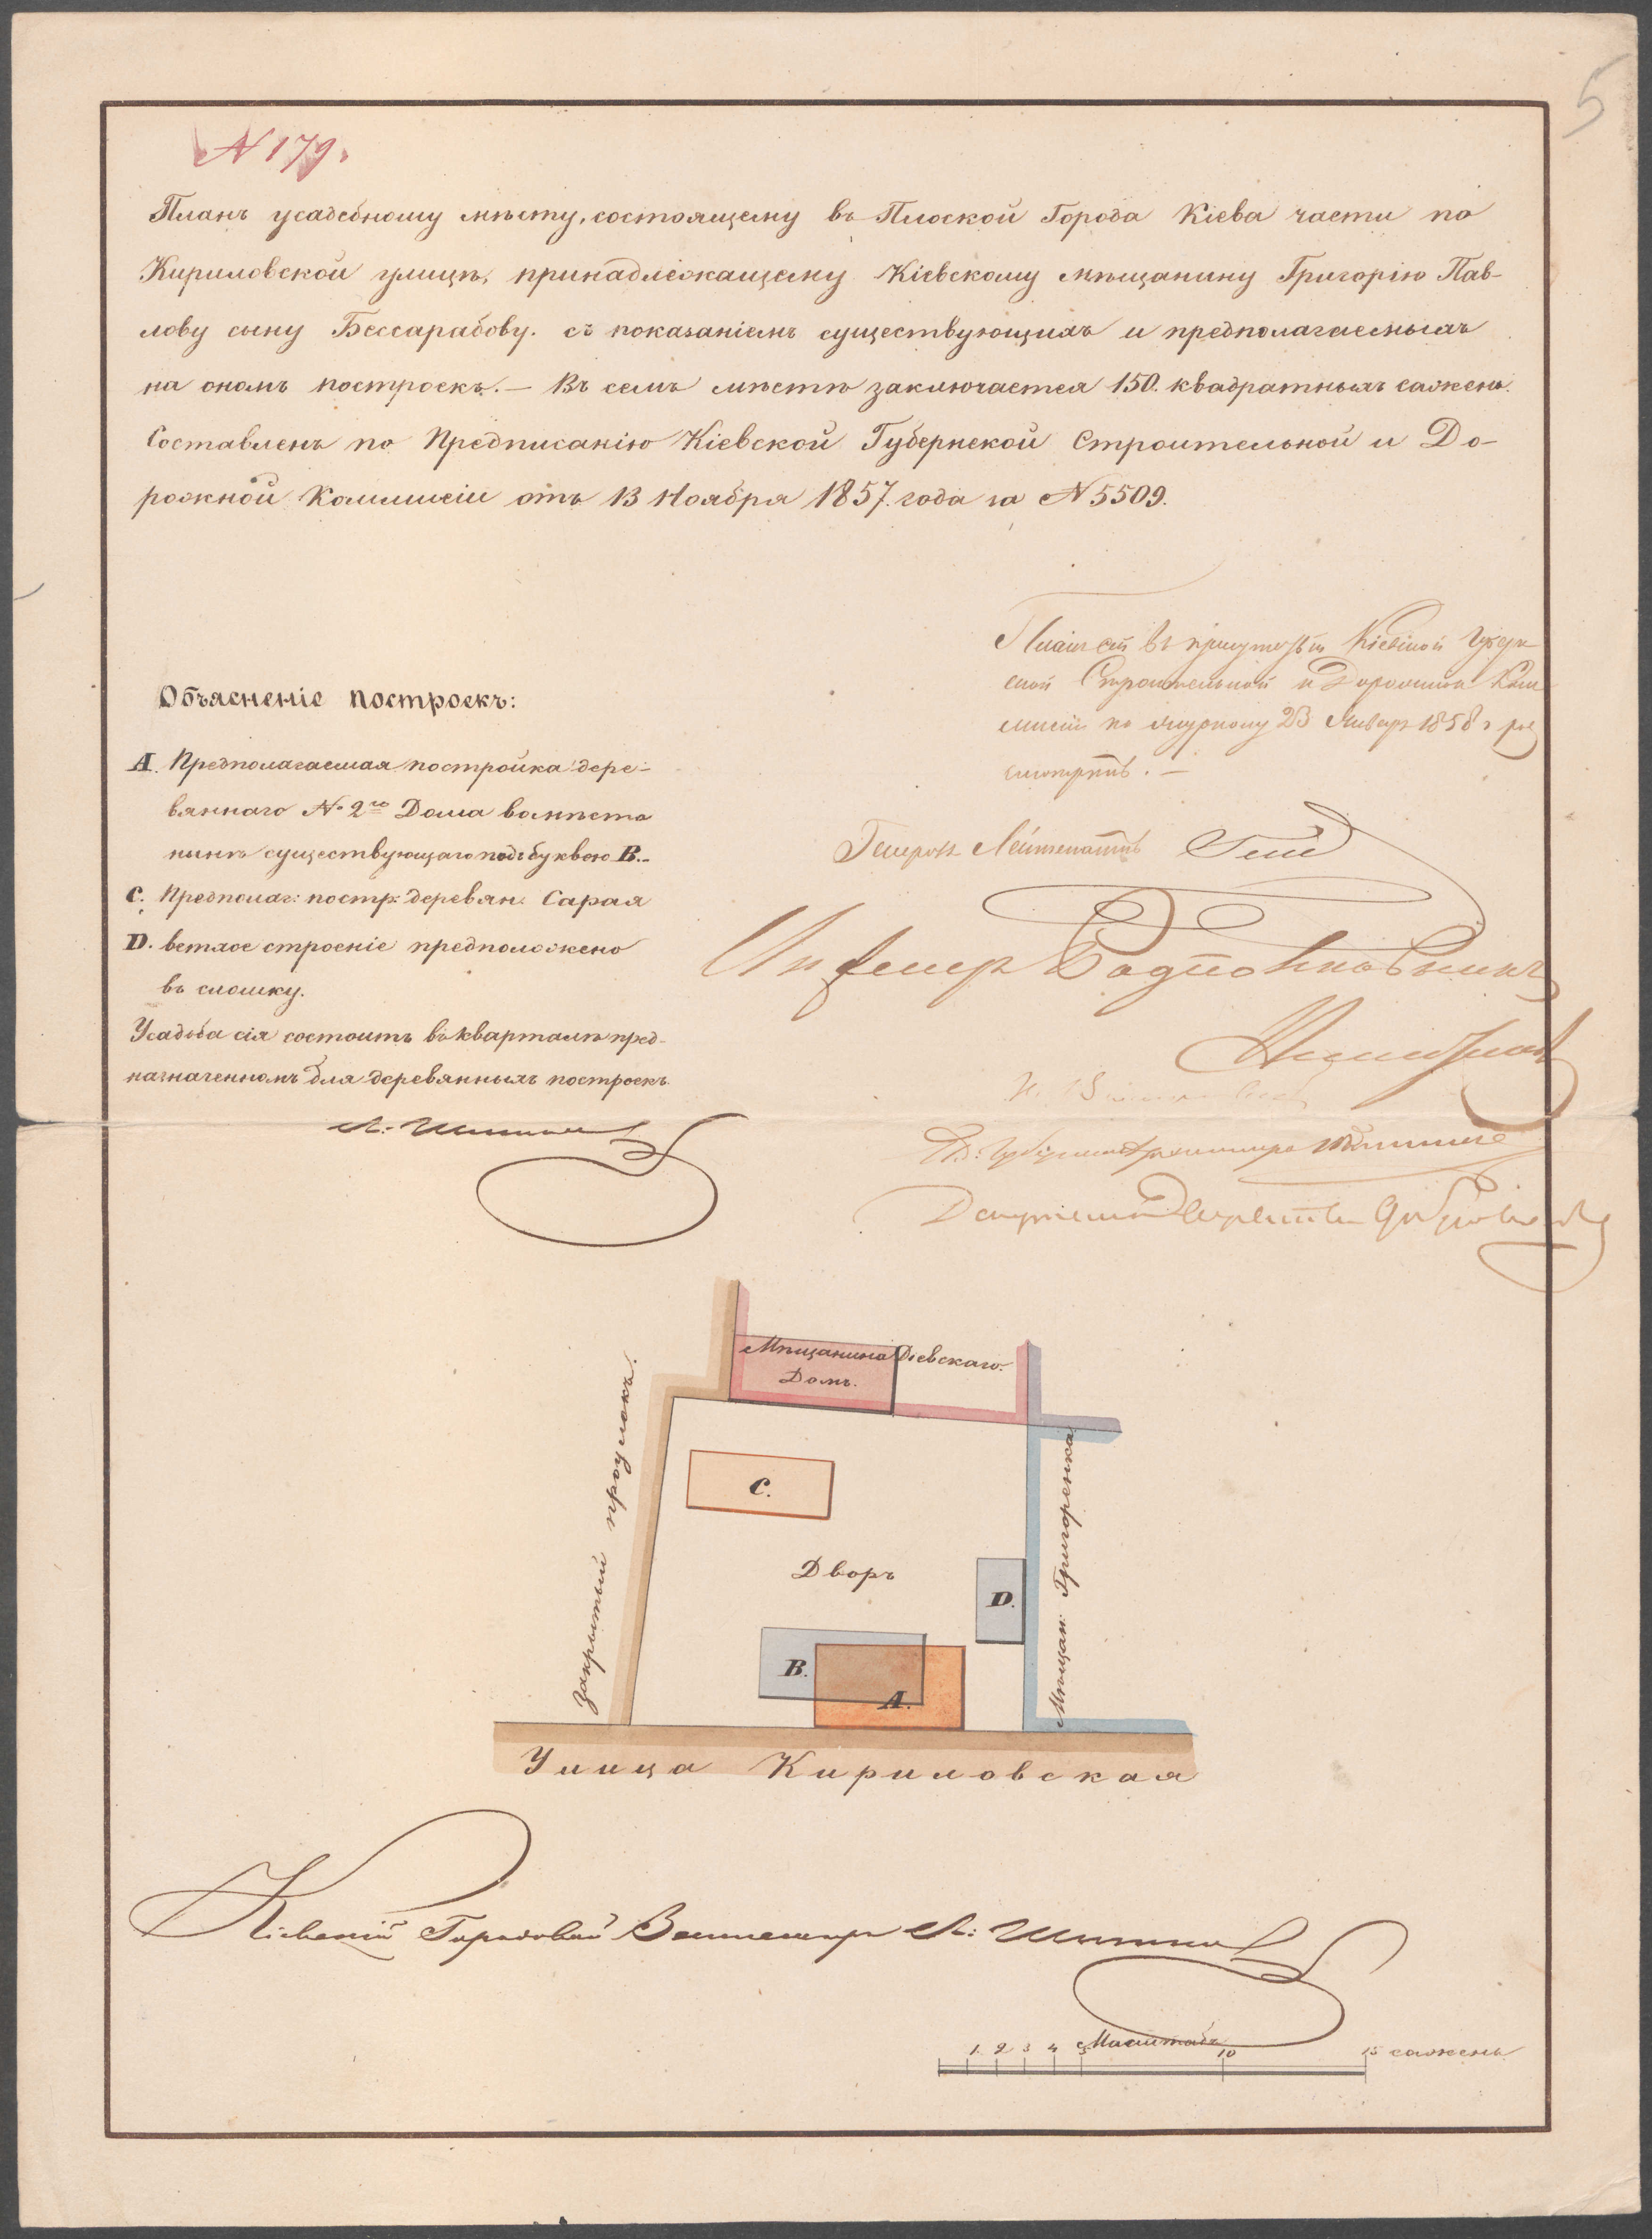 5
N 179.
Планъ усадебному мѣсту, состоящему въ Плоской Города Кіева части по
Кириловской улицѣ, принадлежащему Кіевскому мѣщанину Григорію Пав-
лову сыну Бессарабову. съ показаніемъ существующихъ и предполагаемыхъ
на ономъ построекъ. — Въ семъ мѣстѣ заключается 150. квадратныхъ сажень.
Составленъ по Предписанію Кіевской Губернской Строительной и До-
рожной Коммисіи отъ 13 Ноября 1857. года за N 5509.
Кіевской Губерн-
ской Строительной и Дорожной Ком-
мисіи по журналу 23 Января 1858 г. раз
смотрѣнъ. —
Генералъ Лейтенантъ
Инженеръ Подполковникъ
Объясненіе построекъ:
A. Предполагаемая постройка дере-
вяннаго N. 2го Дома вомѣсто
нынѣ существующаго подъ буквою B. –
C. Предполаг: постр: деревян. Сарая
D. ветхое строеніе предположено
въ сломку.
Усадьба сія состоитъ въ кварталѣ пред-
назначенномъ для деревянныхъ построекъ.
Мѣщанина Діевскаго.
Домъ.
Закрытый проулокъ.
C.
Дворъ
D.
Мѣщан: Григоренка
B.
A.
Улица Кириловская
Кіевскій Городовой Землемѣръ
Масштабъ
1 2 3 4 5 10 15 сажень